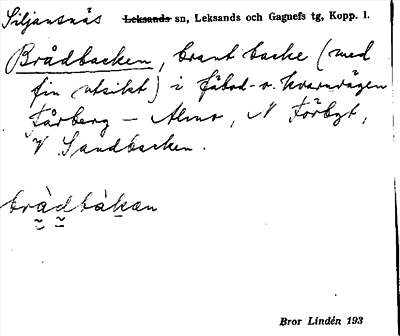 Siljansnäs Leksands sn, Leksands och Gagnefs tg, Kopp. l.
Brådbacken, brant backe (med
fin utsikt) i fäbod- o. kvarnvägen
Fårberg – Almo, N Förbyt,
V Sandbacken.
brådbàkan
Bror Lindén 193